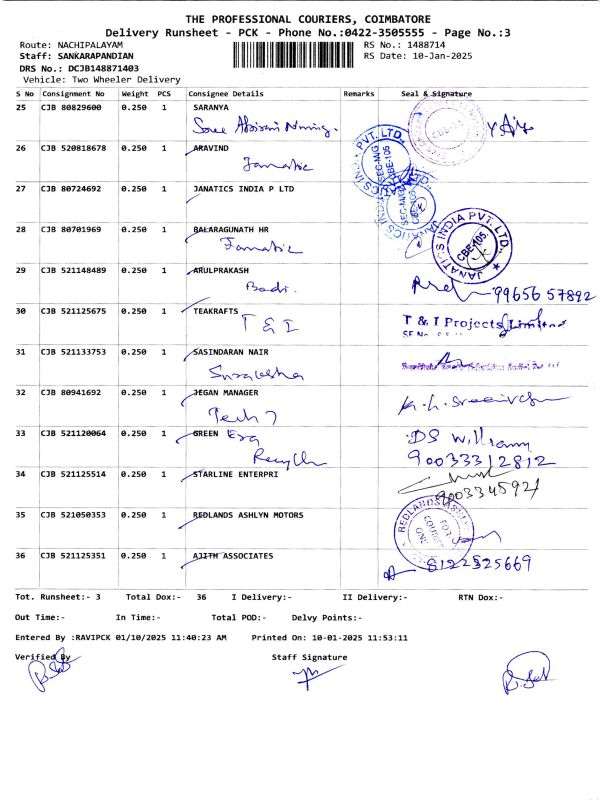 THE PROFESSIONAL COURIERS, COIMBATORE
Delivery Runsheet - PCK - Phone No.:0422-3505555 - Page No.:3
Route: NACHIPALAYAM RS No.: 1488714
Staff: SANKARAPANDIAN RS Date: 10-Jan-2025
DRS No.: DCJB148871403
Vehicle: Two Wheeler Delivery
S No Consignment No Weight PCS Consignee Details Remarks Seal & Signature
25 CJB 80829600 0.250 1 SARANYA
Sree
26 CJB 520818678 0.250 1 ARAVIND
Janatic
JANATICS INDIA PVT. LTD.
SEC-M/G
CBE-105
27 CJB 80724692 0.250 1 JANATICS INDIA P LTD
SEC-M/G
28 CJB 80701969 0.250 1 BALARAGUNATH HR
Janatic
JANATICS INDIA PVT. LTD.
CBE-105.
29 CJB 521148489 0.250 1 ARULPRAKASH
Badi. 9965657892
30 CJB 521125675 0.250 1 TEAKRAFTS
T & I T & I Projects Limited
31 CJB 521133753 0.250 1 SASINDARAN NAIR
32 CJB 80941692 0.250 1 JEGAN MANAGER
Tech 7
33 CJB 521120064 0.250 1 GREEN Era DS William
Recycle 90033312812
34 CJB 521125514 0.250 1 STARLINE ENTERPRI
35 CJB 521050353 0.250 1 REDLANDS ASHLYN MOTORS
REDLANDS ASHLYN
36 CJB 521125351 0.250 1 AJITH ASSOCIATES 8122525669
Tot. Runsheet:- 3 Total Dox:- 36 I Delivery:- II Delivery:- RTN Dox:-
Out Time:- In Time:- Total POD:- Delvy Points:-
Entered By :RAVIPCK 01/10/2025 11:40:23 AM Printed On: 10-01-2025 11:53:11
Verified By Staff Signature